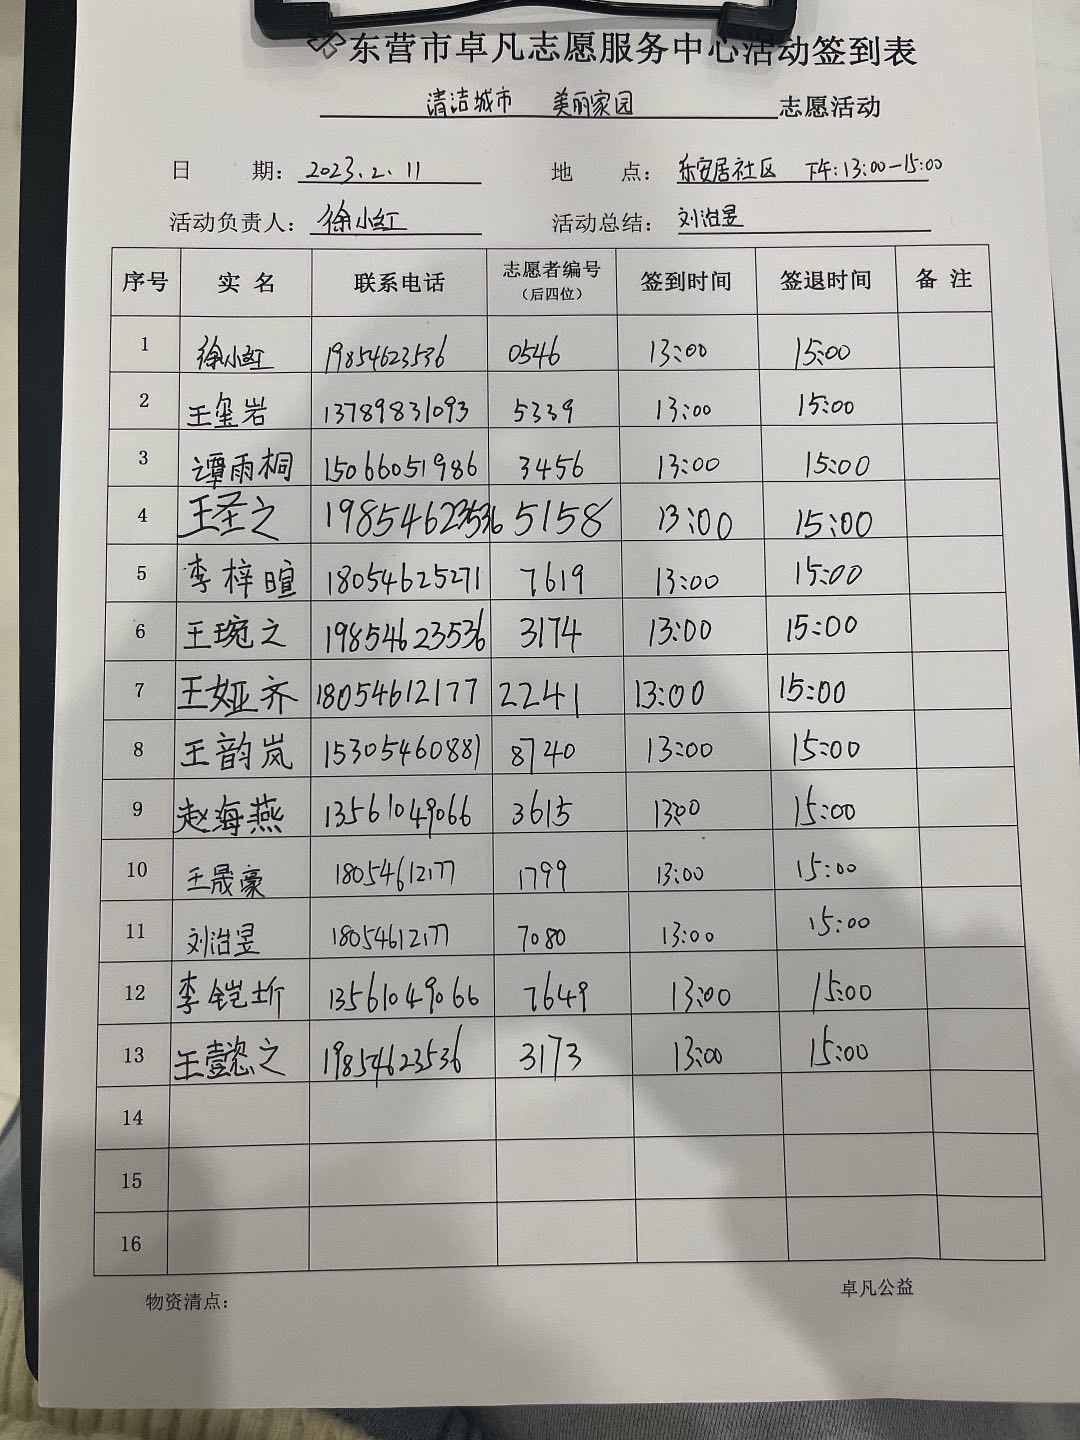 东营市卓凡志愿服务中心活动签到表
清洁城市 美丽家园 志愿活动
日 期：2023.2.11 地 点：东安居社区 下午：13:00-15:00
活动负责人：徐小红 活动总结：刘治昱
序号 实名 联系电话 志愿者编号（后四位） 签到时间 签退时间 备注
1 徐小红 19854623536 0546 13:00 15:00
2 王玺岩 13789831093 5339 13:00 15:00
3 谭雨桐 15066051986 3456 13:00 15:00
4 王圣之 19854623536 5158 13:00 15:00
5 李梓暄 18054625271 7619 13:00 15:00
6 王琬之 19854623536 3174 13:00 15:00
7 王娅齐 18054612177 2241 13:00 15:00
8 王韵岚 15305460881 8740 13:00 15:00
9 赵海燕 13561049066 3615 13:00 15:00
10 王晟豪 18054612177 1799 13:00 15:00
11 刘治昱 18054612177 7080 13:00 15:00
12 李铠圻 13561049066 7649 13:00 15:00
13 王懿之 19854623536 3173 13:00 15:00
14
15
16
物资清点： 卓凡公益